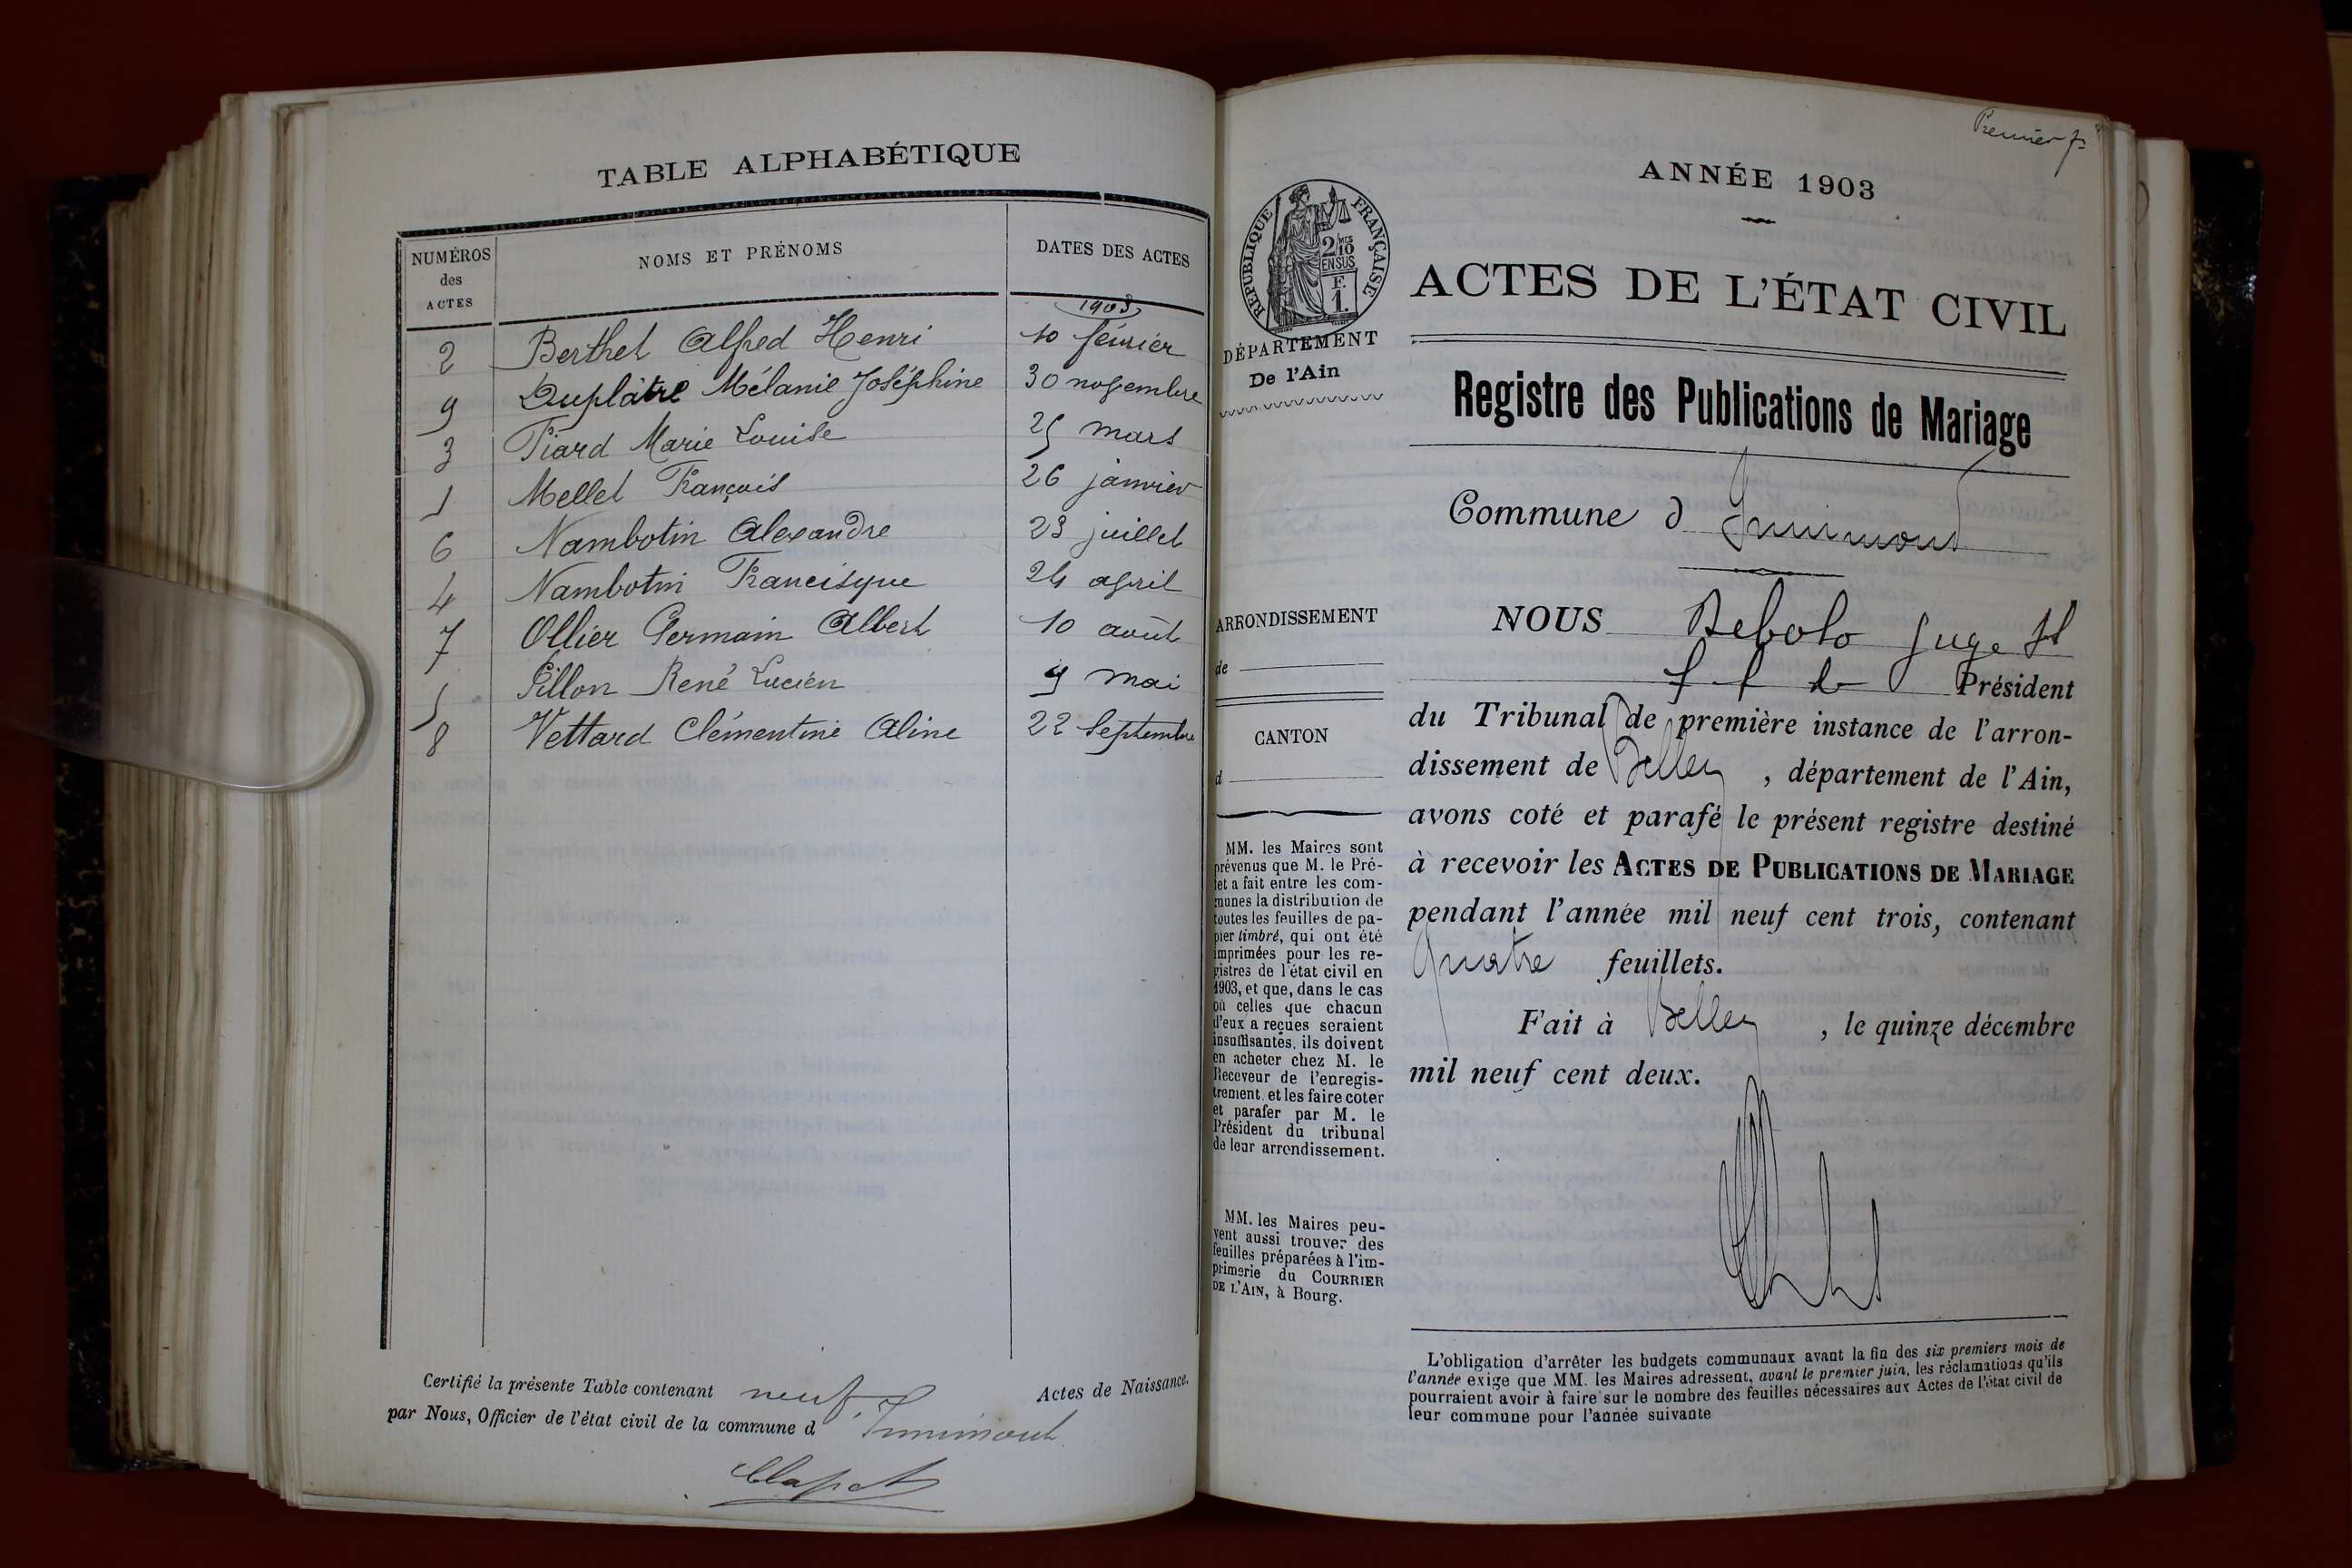 TABLE ALPHABÉTIQUE
NUMÉROS des ACTES
NOMS ET PRÉNOMS
DATES DES ACTES
1903
2 Berthet Alfred Henri 10 février
9 Duplâtre Mélanie Joséphine 30 novembre
3 Fiard Marie Louise 25 mars
1 Mellet François 26 janvier
6 Nambotin Alexandre 23 juillet
4 Nambotin Francisque 24 avril
7 Ollier Germain Albert 10 août
5 Pillon René Lucien 9 mai
8 Vettard Clémentine Aline 22 Septembre
Certifié la présente Table contenant neuf Actes de Naissance,
par Nous, Officier de l'état civil de la commune d Innimont
Clapot
Premier f
ANNÉE 1903
RÉPUBLIQUE FRANÇAISE
2 MES 10
EN SUS
F.
1.
DÉPARTEMENT
De l'Ain
ARRONDISSEMENT
de
CANTON
d
MM. les Maires sont
prévenus que M. le Pré-
fet a fait entre les com-
munes la distribution de
toutes les feuilles de pa-
pier timbré, qui ont été
imprimées pour les re-
gistres de l'état civil en
1903, et que, dans le cas
où celles que chacun
d'eux a reçues seraient
insuffisantes, ils doivent
en acheter chez M. le
Receveur de l'enregis-
trement, et les faire coter
et parafer par M. le
Président du tribunal
de leur arrondissement.
MM. les Maires peu-
vent aussi trouver des
feuilles préparées à l'im-
primerie du COURRIER
DE L'AIN, à Bourg.
ACTES DE L'ÉTAT CIVIL
Registre des Publications de Mariage
Commune d Innimont
NOUS Juge
Président
du Tribunal de première instance de l'arron-
dissement de Belley , département de l'Ain,
avons coté et parafé le présent registre destiné
à recevoir les ACTES DE PUBLICATIONS DE MARIAGE
pendant l'année mil neuf cent trois, contenant
Quatre feuillets.
Fait à Belley , le quinze décembre
mil neuf cent deux.
L'obligation d'arrêter les budgets communaux avant la fin des six premiers mois de
l'année exige que MM. les Maires adressent, avant le premier juin, les réclamations qu'ils
pourraient avoir à faire sur le nombre des feuilles nécessaires aux Actes de l'état civil de
leur commune pour l'année suivante